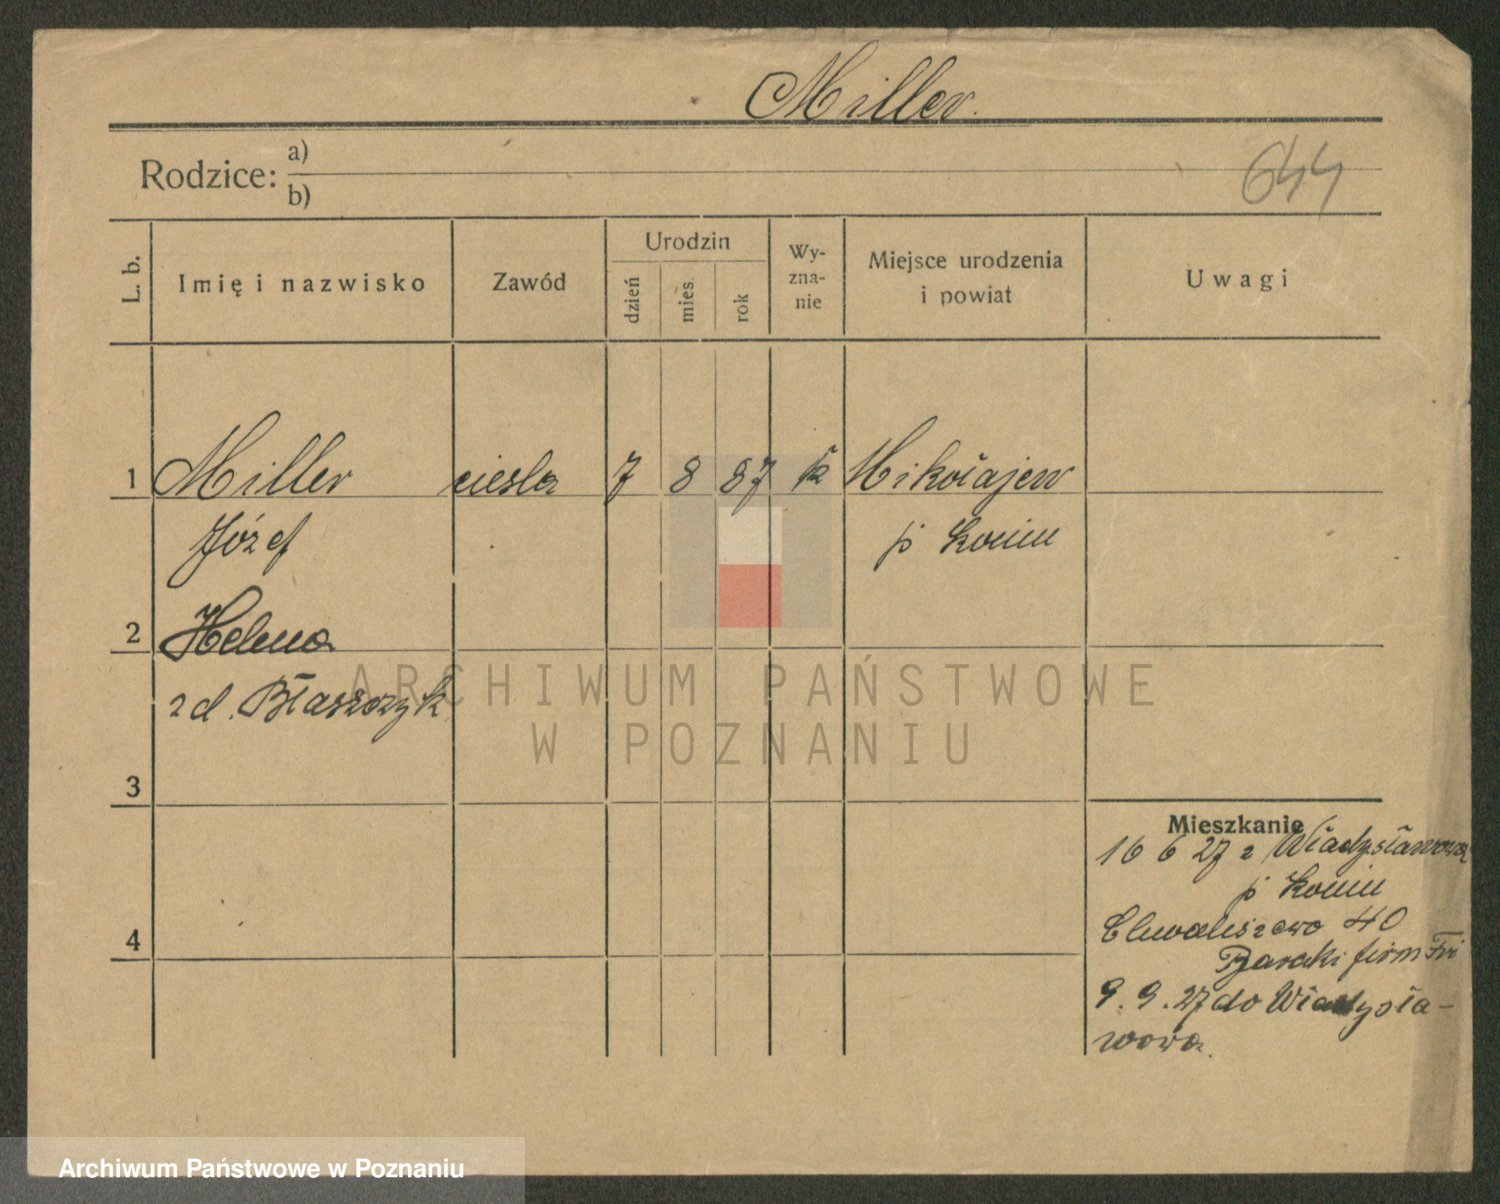 Miller.
Rodzice: a)
b)
644
L. b.
Imię i nazwisko
Zawód
Urodzin
dzień
mies.
rok
Wy-
zna-
nie
Miejsce urodzenia
i powiat
Uwagi
1 Miller cieśla 7 8 87 k Mikołajew
Józef p Konin
2 Helena
z d. Błaszczyk
3
4
Mieszkanie
16 6 27 z Władysławowa
p Konin
Chwaliszewo 40
Baraki firm
9.9.27 do Władysła-
wowa.
ARCHIWUM PAŃSTWOWE
W POZNANIU
Archiwum Państwowe w Poznaniu